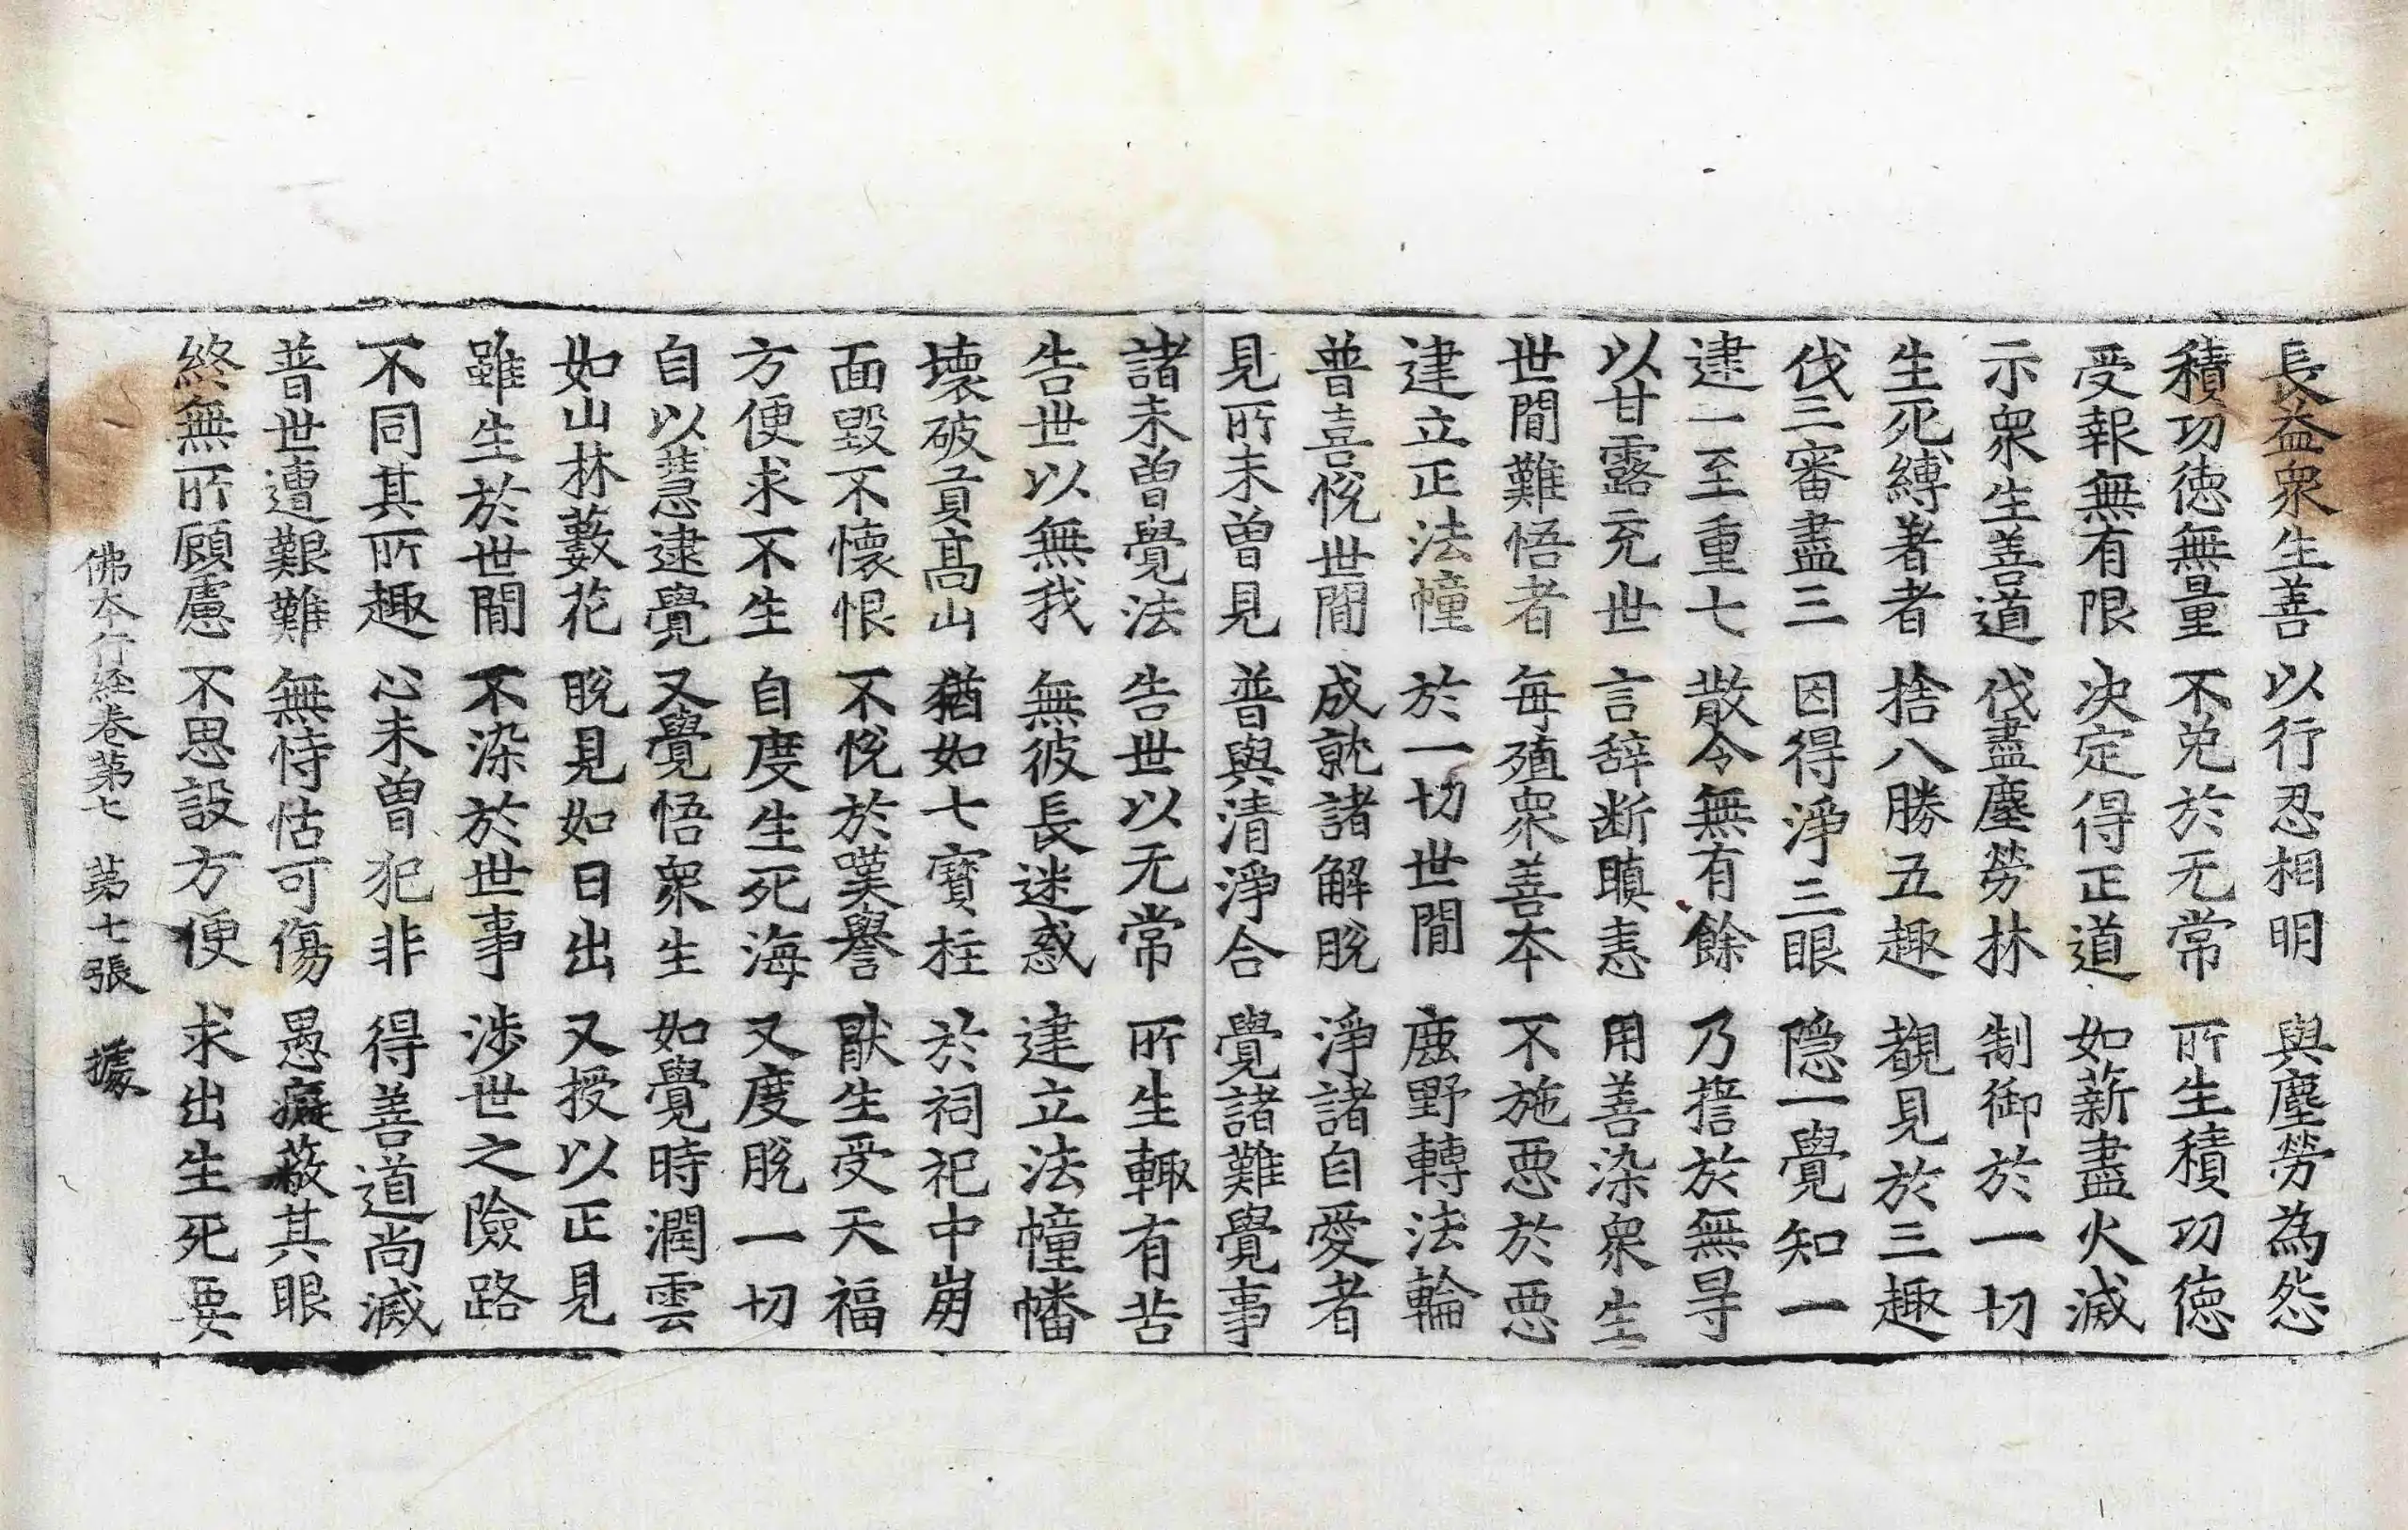 長益衆生善　以行忍相明　與塵勞為怨
積功徳無量　不免於无常　所生積功徳
受報無有限　决定得正道　如薪盡火滅
示衆生善道　伐盡塵勞林　制御於一切
生死縛著者　捨八勝五趣　覩見於三趣
伐三審盡三　因得淨三眼　隐一覺知一
逮一至重七　散令無有餘　乃譍於無㝵
以甘露充世　言辞断瞋恚　用善染衆生
世間難悟者　每殖衆善本　不施惡於惡
建立正法幢　於一切世間　鹿野轉法輪
普喜恱世間　成就諸解脫　淨諸自愛者
見所未曾見　普與清淨合　覺諸難覺事
諸未曾覺法　告世以无常　所生輙有苦
告世以無我　無彼長迷惑　建立法幢幡
壊破貢高山　猶如七寶柱　於祠祀中崩
面毀不懷恨　不恱於嘆譽　猒生受天福
方便求不生　自度生死海　又度脫一切
自以慧逮覺　又覺悟衆生　如覺時潤雲
如山林藪花　脫見如日出　又授以正見
雖生於世間　不染於世事　渉世之險路
不同其所趣　心未曾犯非　得善道尚滅
普世遭艱難　無恃怙可傷　愚癡蔽其眼
終無所顧慮　不思設方便　求出生死要
佛本行経卷第七　第七張　據